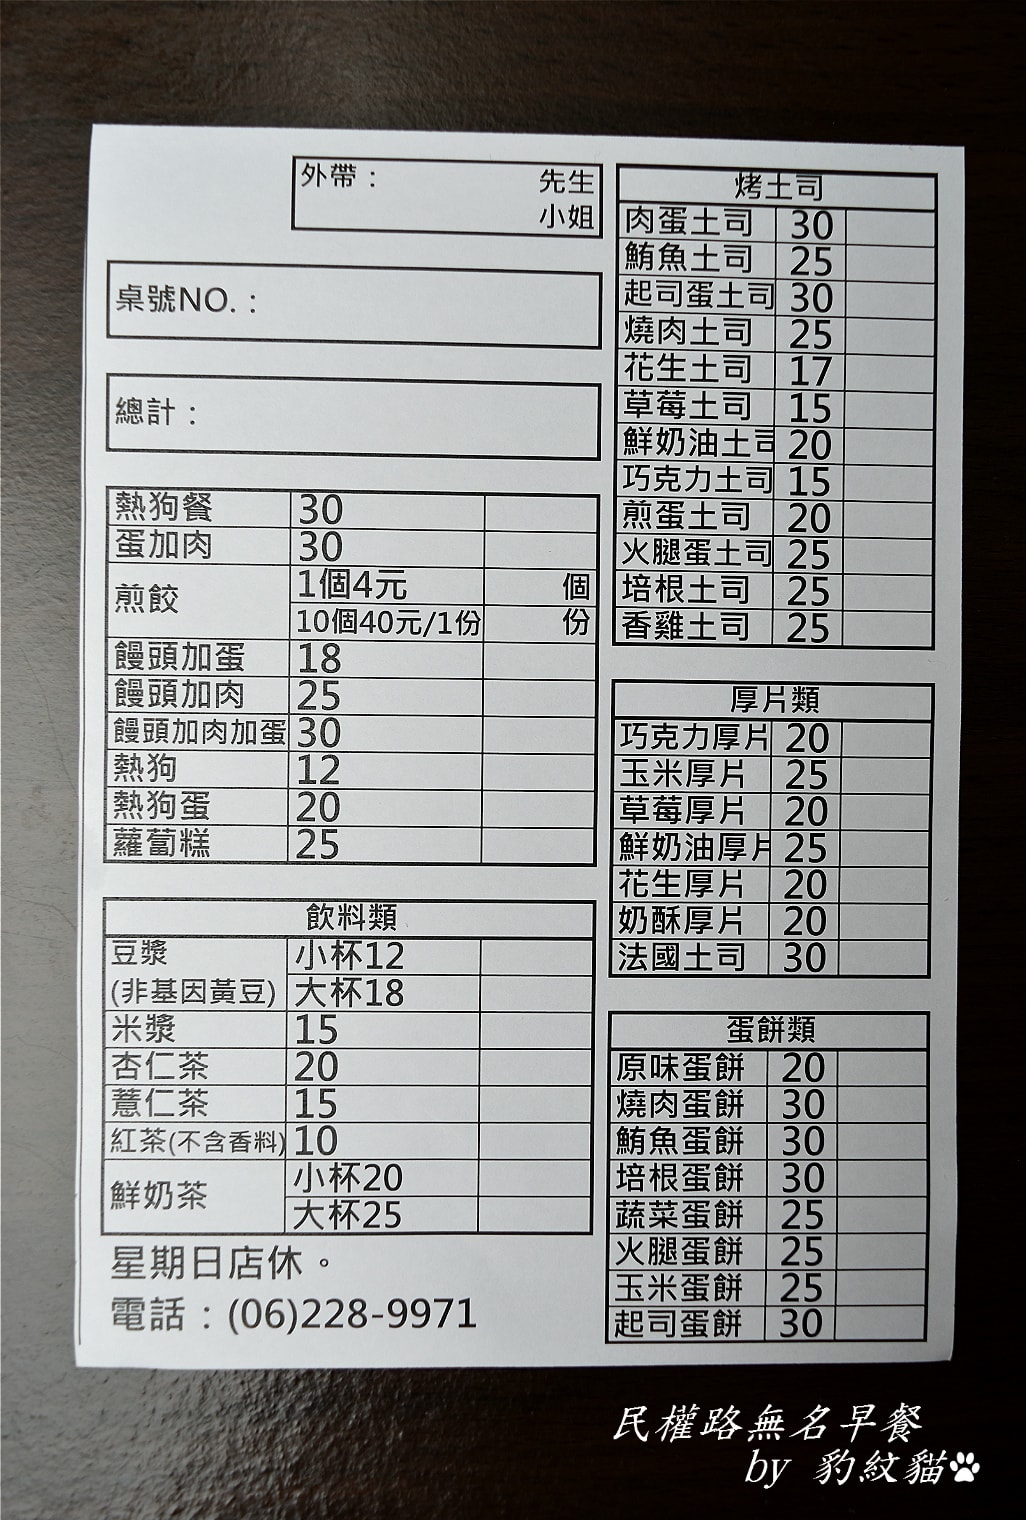 外帶：先生
小姐
桌號NO.：
總計：
熱狗餐 30
蛋加肉 30
煎餃 1個4元 個
10個40元/1份 份
饅頭加蛋 18
饅頭加肉 25
饅頭加肉加蛋 30
熱狗 12
熱狗蛋 20
蘿蔔糕 25
飲料類
豆漿 小杯12
(非基因黃豆) 大杯18
米漿 15
杏仁茶 20
薏仁茶 15
紅茶(不含香料) 10
鮮奶茶 小杯20
大杯25
星期日店休。
電話：(06)228-9971
烤土司
肉蛋土司 30
鮪魚土司 25
起司蛋土司 30
燒肉土司 25
花生土司 17
草莓土司 15
鮮奶油土司 20
巧克力土司 15
煎蛋土司 20
火腿蛋土司 25
培根土司 25
香雞土司 25
厚片類
巧克力厚片 20
玉米厚片 25
草莓厚片 20
鮮奶油厚片 25
花生厚片 20
奶酥厚片 20
法國土司 30
蛋餅類
原味蛋餅 20
燒肉蛋餅 30
鮪魚蛋餅 30
培根蛋餅 30
蔬菜蛋餅 25
火腿蛋餅 25
玉米蛋餅 25
起司蛋餅 30
民權路無名早餐
by 豹紋貓